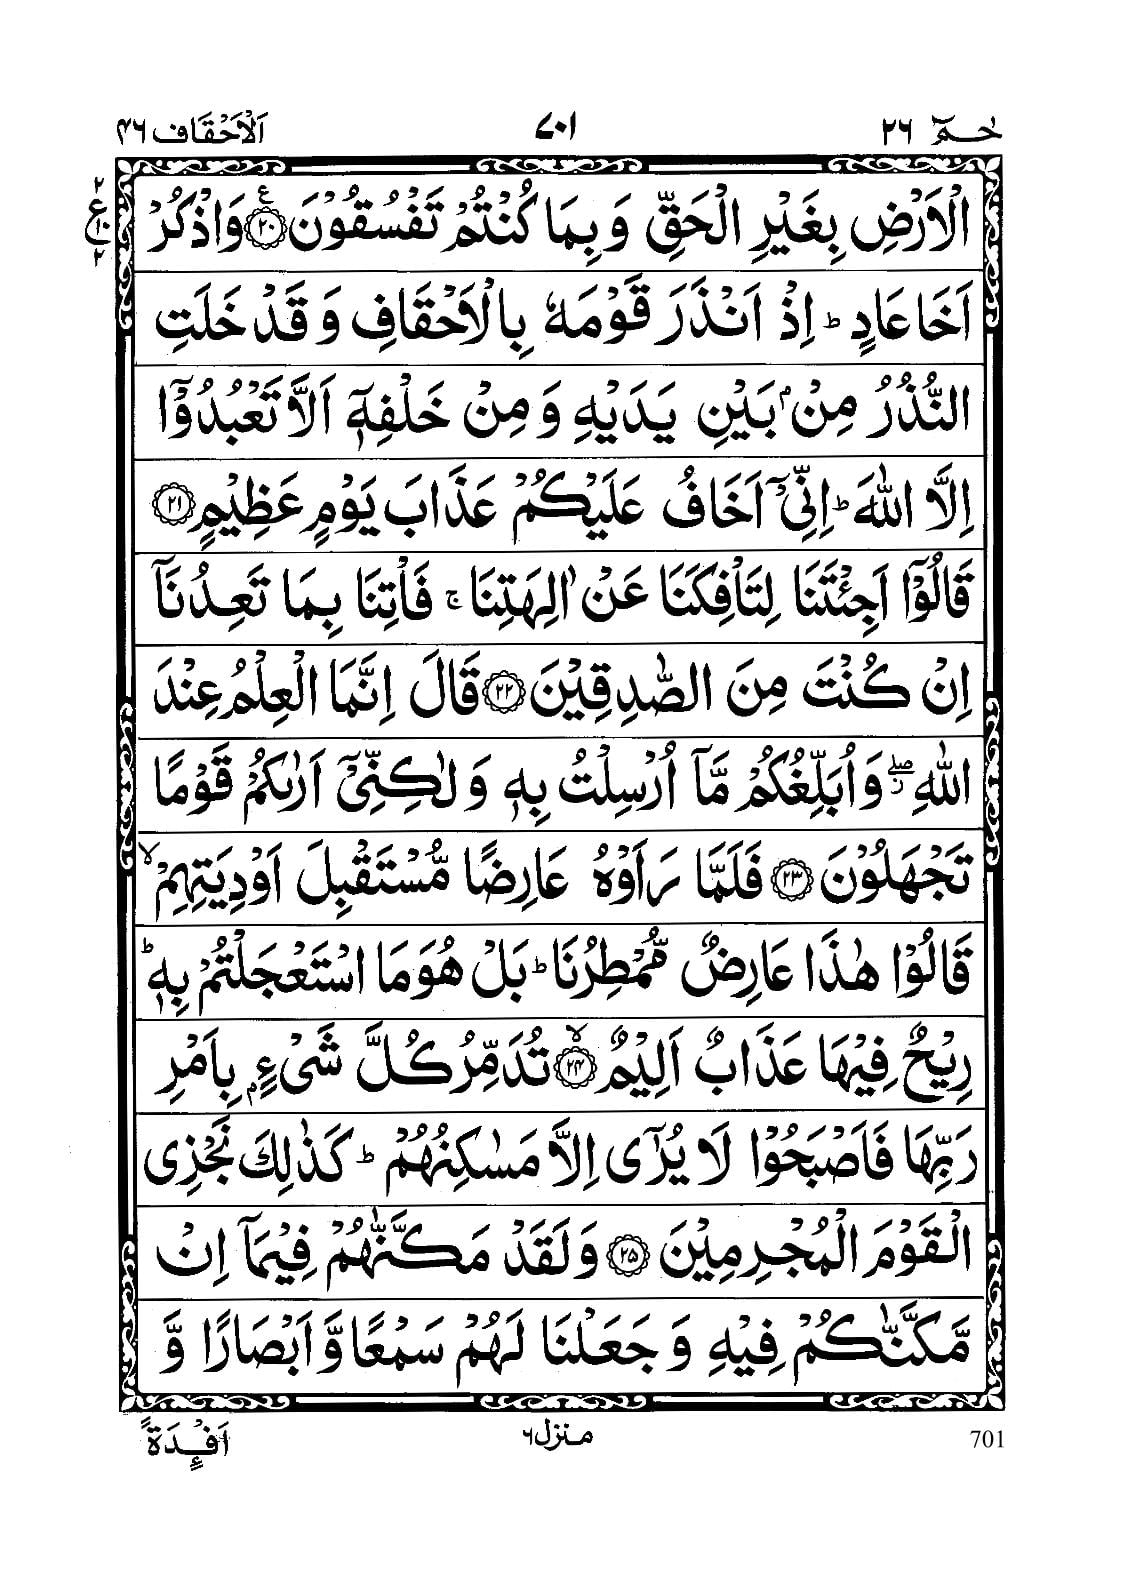 حٰمٓ ٢٦ ٧٠١ اَلْاَحْقَاف ٤٦
الْاَرْضِ بِغَيْرِ الْحَقِّ وَ بِمَا كُنْتُمْ تَفْسُقُوْنَ ﴿۲۰﴾ وَاذْكُرْ
اَخَا عَادٍ ؕ اِذْ اَنْذَرَ قَوْمَهٗ بِالْاَحْقَافِ وَ قَدْ خَلَتِ
النُّذُرُ مِنْۢ بَيْنِ يَدَيْهِ وَ مِنْ خَلْفِهٖٓ اَلَّا تَعْبُدُوْٓا
اِلَّا اللّٰهَ ؕ اِنِّيْٓ اَخَافُ عَلَيْكُمْ عَذَابَ يَوْمٍ عَظِيْمٍ ﴿۲۱﴾
قَالُوْٓا اَجِئْتَنَا لِتَاْفِكَنَا عَنْ اٰلِهَتِنَا ۚ فَاْتِنَا بِمَا تَعِدُنَآ
اِنْ كُنْتَ مِنَ الصّٰدِقِيْنَ ﴿۲۲﴾ قَالَ اِنَّمَا الْعِلْمُ عِنْدَ
اللّٰهِ ۖ وَ اُبَلِّغُكُمْ مَّآ اُرْسِلْتُ بِهٖ وَ لٰكِنِّيْٓ اَرٰىكُمْ قَوْمًا
تَجْهَلُوْنَ ﴿۲۳﴾ فَلَمَّا رَاَوْهُ عَارِضًا مُّسْتَقْبِلَ اَوْدِيَتِهِمْ ۙ
قَالُوْا هٰذَا عَارِضٌ مُّمْطِرُنَا ؕ بَلْ هُوَ مَا اسْتَعْجَلْتُمْ بِهٖ ؕ
رِيْحٌ فِيْهَا عَذَابٌ اَلِيْمٌ ۙ﴿۲۴﴾ تُدَمِّرُ كُلَّ شَيْءٍۭ بِاَمْرِ
رَبِّهَا فَاَصْبَحُوْا لَا يُرٰٓى اِلَّا مَسٰكِنُهُمْ ؕ كَذٰلِكَ نَجْزِي
الْقَوْمَ الْمُجْرِمِيْنَ ﴿۲۵﴾ وَ لَقَدْ مَكَّنّٰهُمْ فِيْمَآ اِنْ
مَّكَّنّٰكُمْ فِيْهِ وَ جَعَلْنَا لَهُمْ سَمْعًا وَّ اَبْصَارًا وَّ
701 منزل ٦ اَفْـِٕدَةً